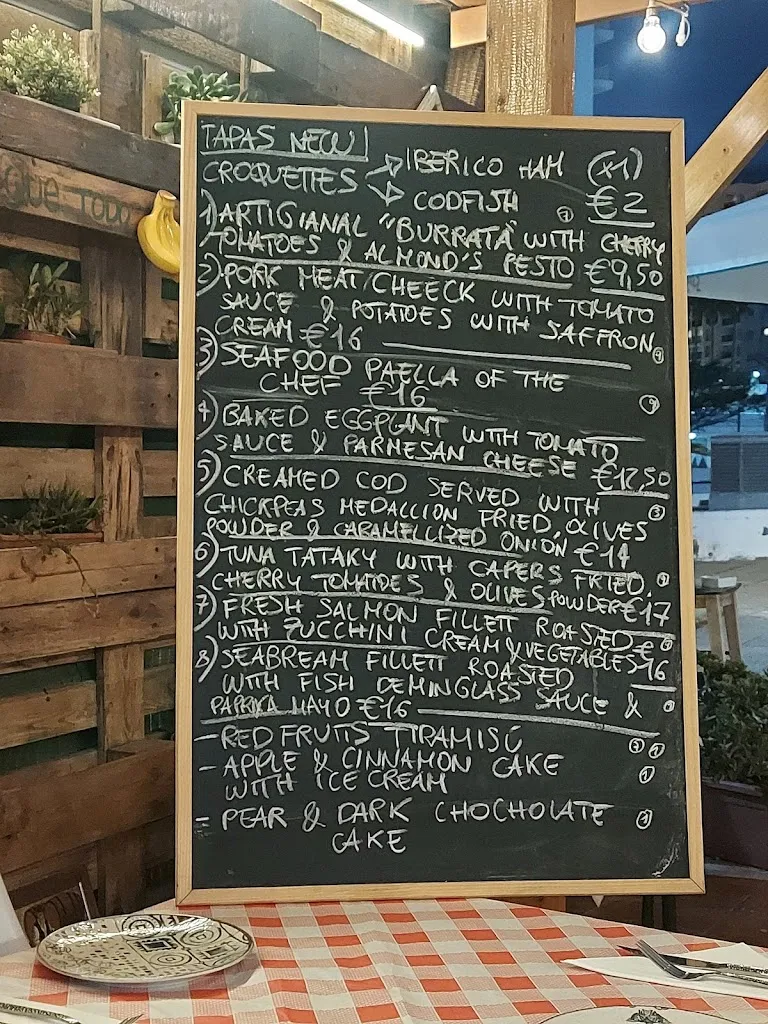 QUE TODO
TAPAS NEW!
CROQUETTES IBERICO HAM (x1)
CODFISH €2
1) ARTIGIANAL "BURRATA" WITH CHERRY
TOMATOES & ALMOND'S PESTO €9,50
2) PORK MEAT/CHEECK WITH TOMATO
SAUCE & POTATOES WITH SAFFRON
CREAM €16
3) SEAFOOD PAELLA OF THE
CHEF €16
4) BAKED EGGPLANT WITH TOMATO
SAUCE & PARMESAN CHEESE €12,50
5) CREAMED COD SERVED WITH
CHICKPEAS MEDALLION FRIED, OLIVES
POWDER & CARAMELLIZED ONION €14
6) TUNA TATAKY WITH CAPERS FRIED,
CHERRY TOMATOES & OLIVES POWDER €17
7) FRESH SALMON FILLETT ROASTED €
WITH ZUCCHINI CREAM & VEGETABLES 16
8) SEABREAM FILLETT ROASTED
WITH FISH DEMINGLASS SAUCE &
PAPRIKA MAYO €16
- RED FRUITS TIRAMISÚ
- APPLE & CINNAMON CAKE
WITH ICE CREAM
- PEAR & DARK CHOCHOLATE
CAKE